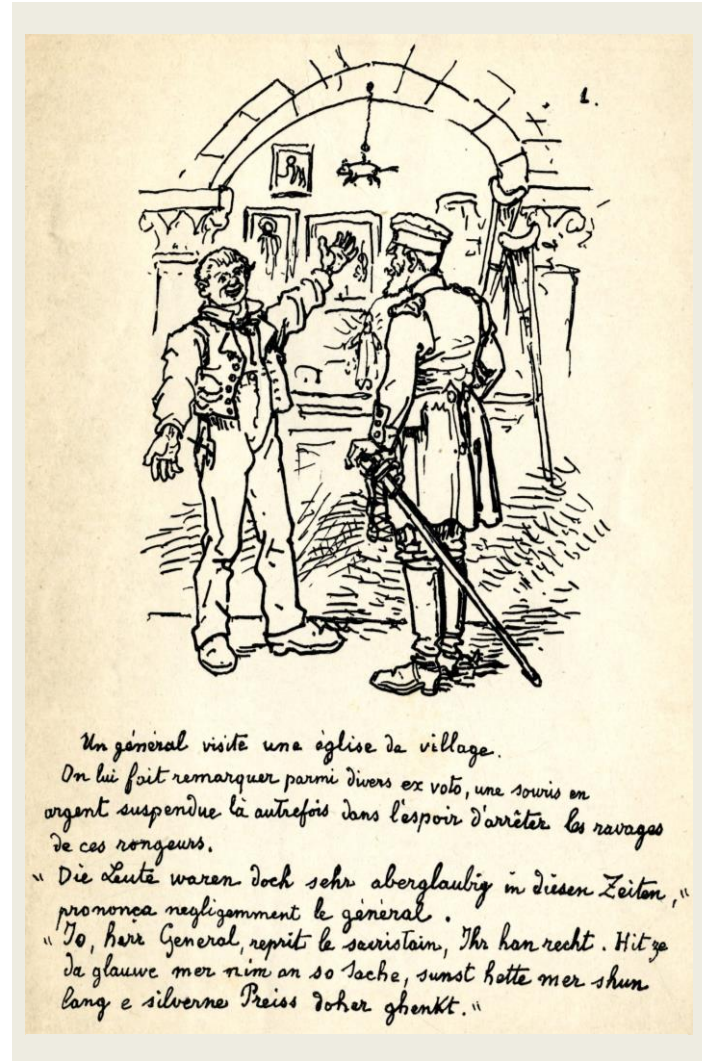 1.
Un général visite une église de village.
On lui fait remarquer parmi divers ex voto, une souris en
argent suspendue là autrefois dans l'espoir d'arrêter les ravages
de ces rongeurs.
" Die Leute waren doch sehr aberglaubig in diesen Zeiten,"
prononça negligemment le général.
" Jo, herr General, reprit le sacristain, Ihr han recht. Hit ze
da glauwe mer nim an so Sache, sunst hette mer shun
lang e silverne Preiss doher ghenkt."